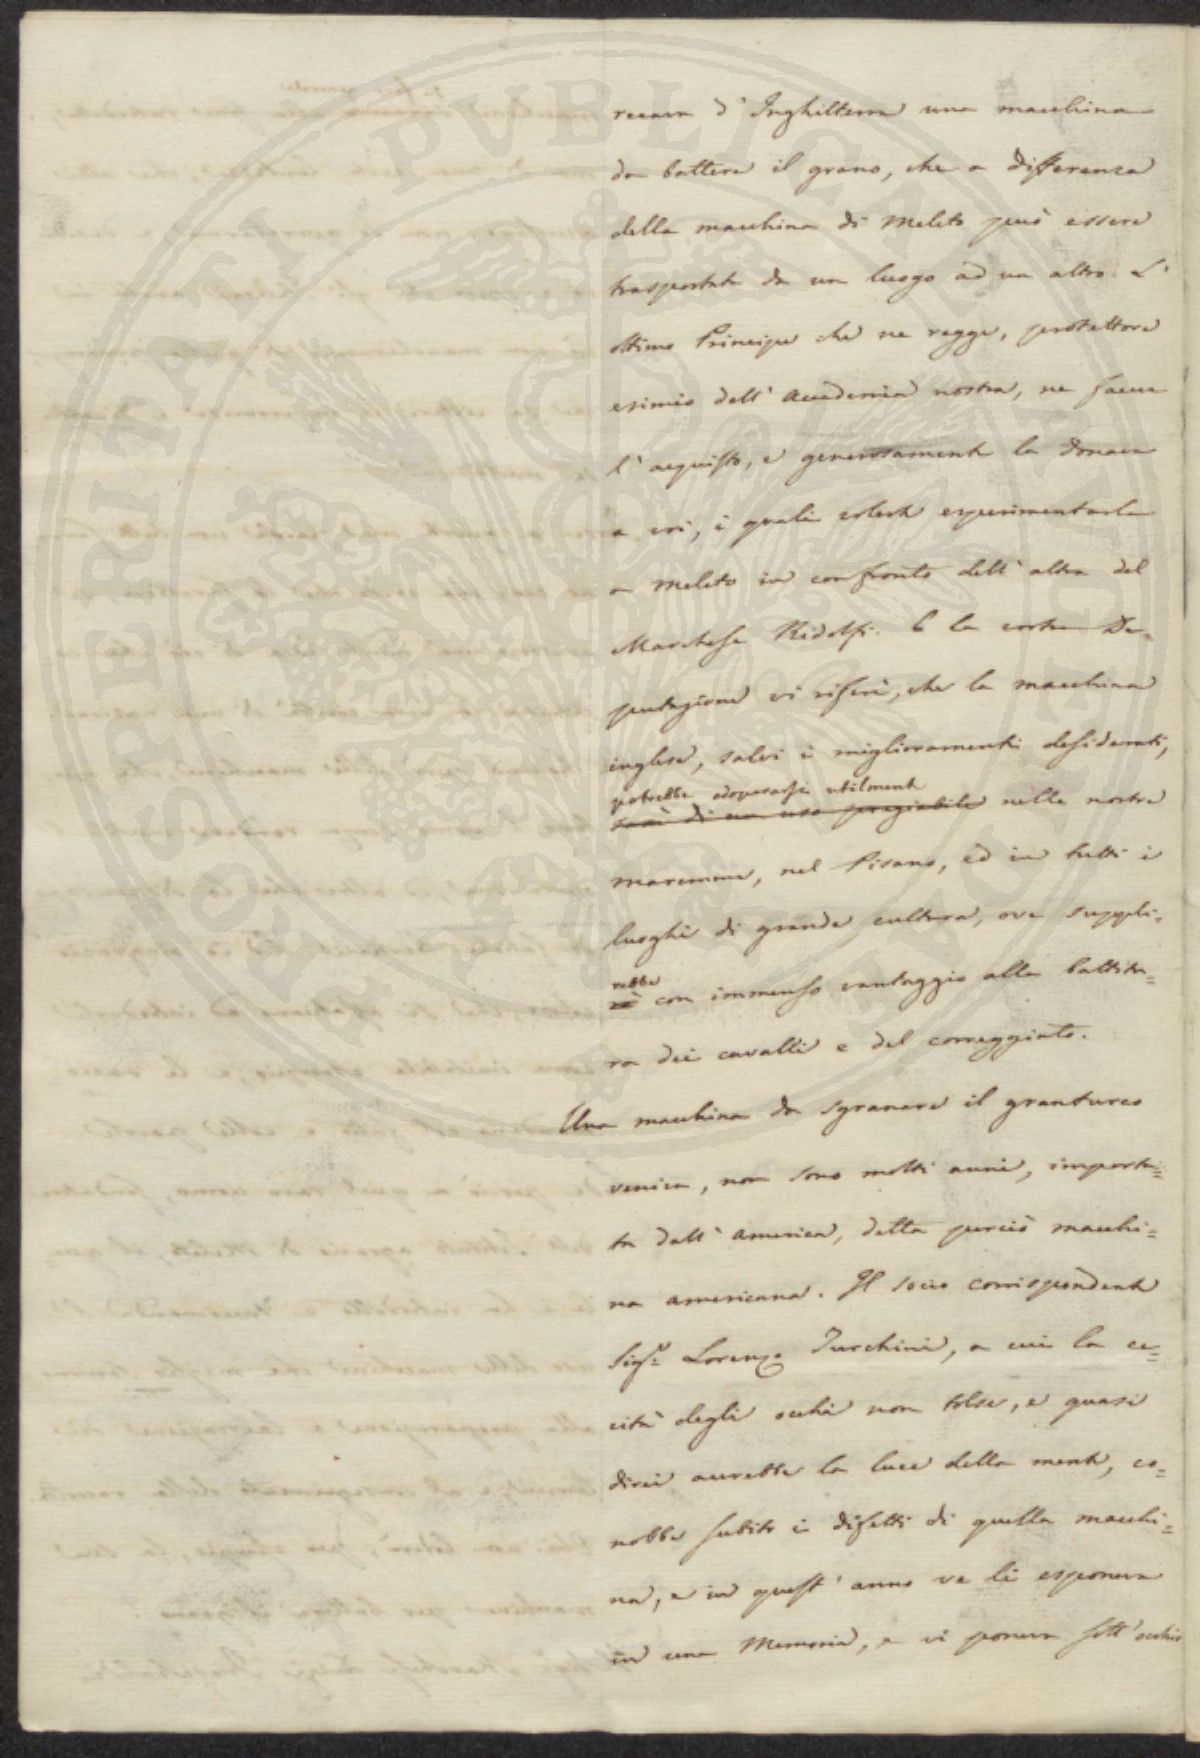 recava d'Inghilterra una macchina
da battere il grano, che a differenza
della macchina di Meleto può essere
trasportata da un luogo ad un altro. L'
ottimo Principe che ne regge, protettore
esimio dell'Accademia nostra, ne facea
l'acquisto, e generosamente la donava
a voi, i quali voleste esperimentarla
a Meleto in confronto dell'altra del
Marchese Ridolfi. E la vostra De-
putazione vi riferì, che la macchina
inglese, salvi i miglioramenti desiderati,
potrebbe adoperarsi utilmente
sarà di un uso pregiabile nelle nostre
maremme, nel Pisano, ed in tutti i
luoghi di grande cultura, ove suppli=
rebbe
rà con immenso vantaggio alla battitu=
ra dei cavalli e del correggiato.
Una macchina da sgranare il granturco
veniva, non sono molti anni, importa=
ta dall'America, detta perciò macchi=
na americana. Il socio corrispondente
Sigr. Lorenzo Turchini, a cui la ce=
cità degli occhi non tolse, e quasi
direi accrebbe la luce della mente, co=
nobbe subito i difetti di quella macchi=
na, e in quest'anno ve li esponeva
in una Memoria, e vi poneva sott'occhio
PROSPERITATI PUBLICAE AUGENDAE